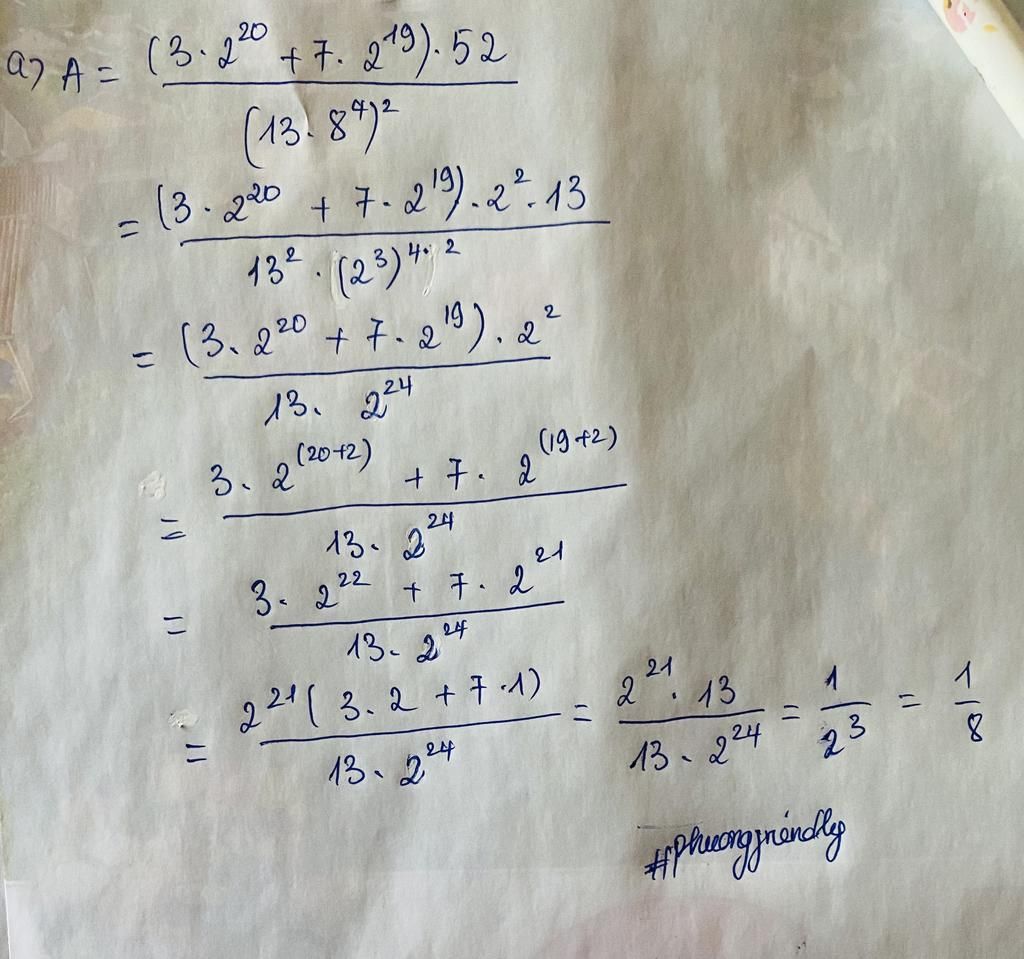 a) A = (3 · 2^20 + 7 · 2^19) · 52 / (13 · 8^4)^2
= (3 · 2^20 + 7 · 2^19) · 2^2 · 13 / 13^2 · (2^3)^4·2
= (3 · 2^20 + 7 · 2^19) · 2^2 / 13 · 2^24
= 3 · 2^(20+2) + 7 · 2^(19+2) / 13 · 2^24
= 3 · 2^22 + 7 · 2^21 / 13 · 2^24
= 2^21 ( 3 · 2 + 7 · 1) / 13 · 2^24 = 2^21 · 13 / 13 · 2^24 = 1 / 2^3 = 1 / 8
#phuongfriendly